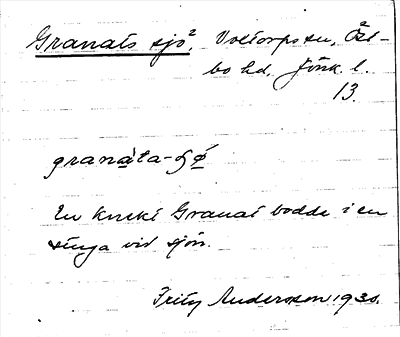 Granats sjö², Voxtorps sn, Öst-
bo hd, Jönk. l.
13.
granàta-ʃǿ
En knekt Granat bodde i en
stuga vid sjön.
Fritz Andersson 1930.